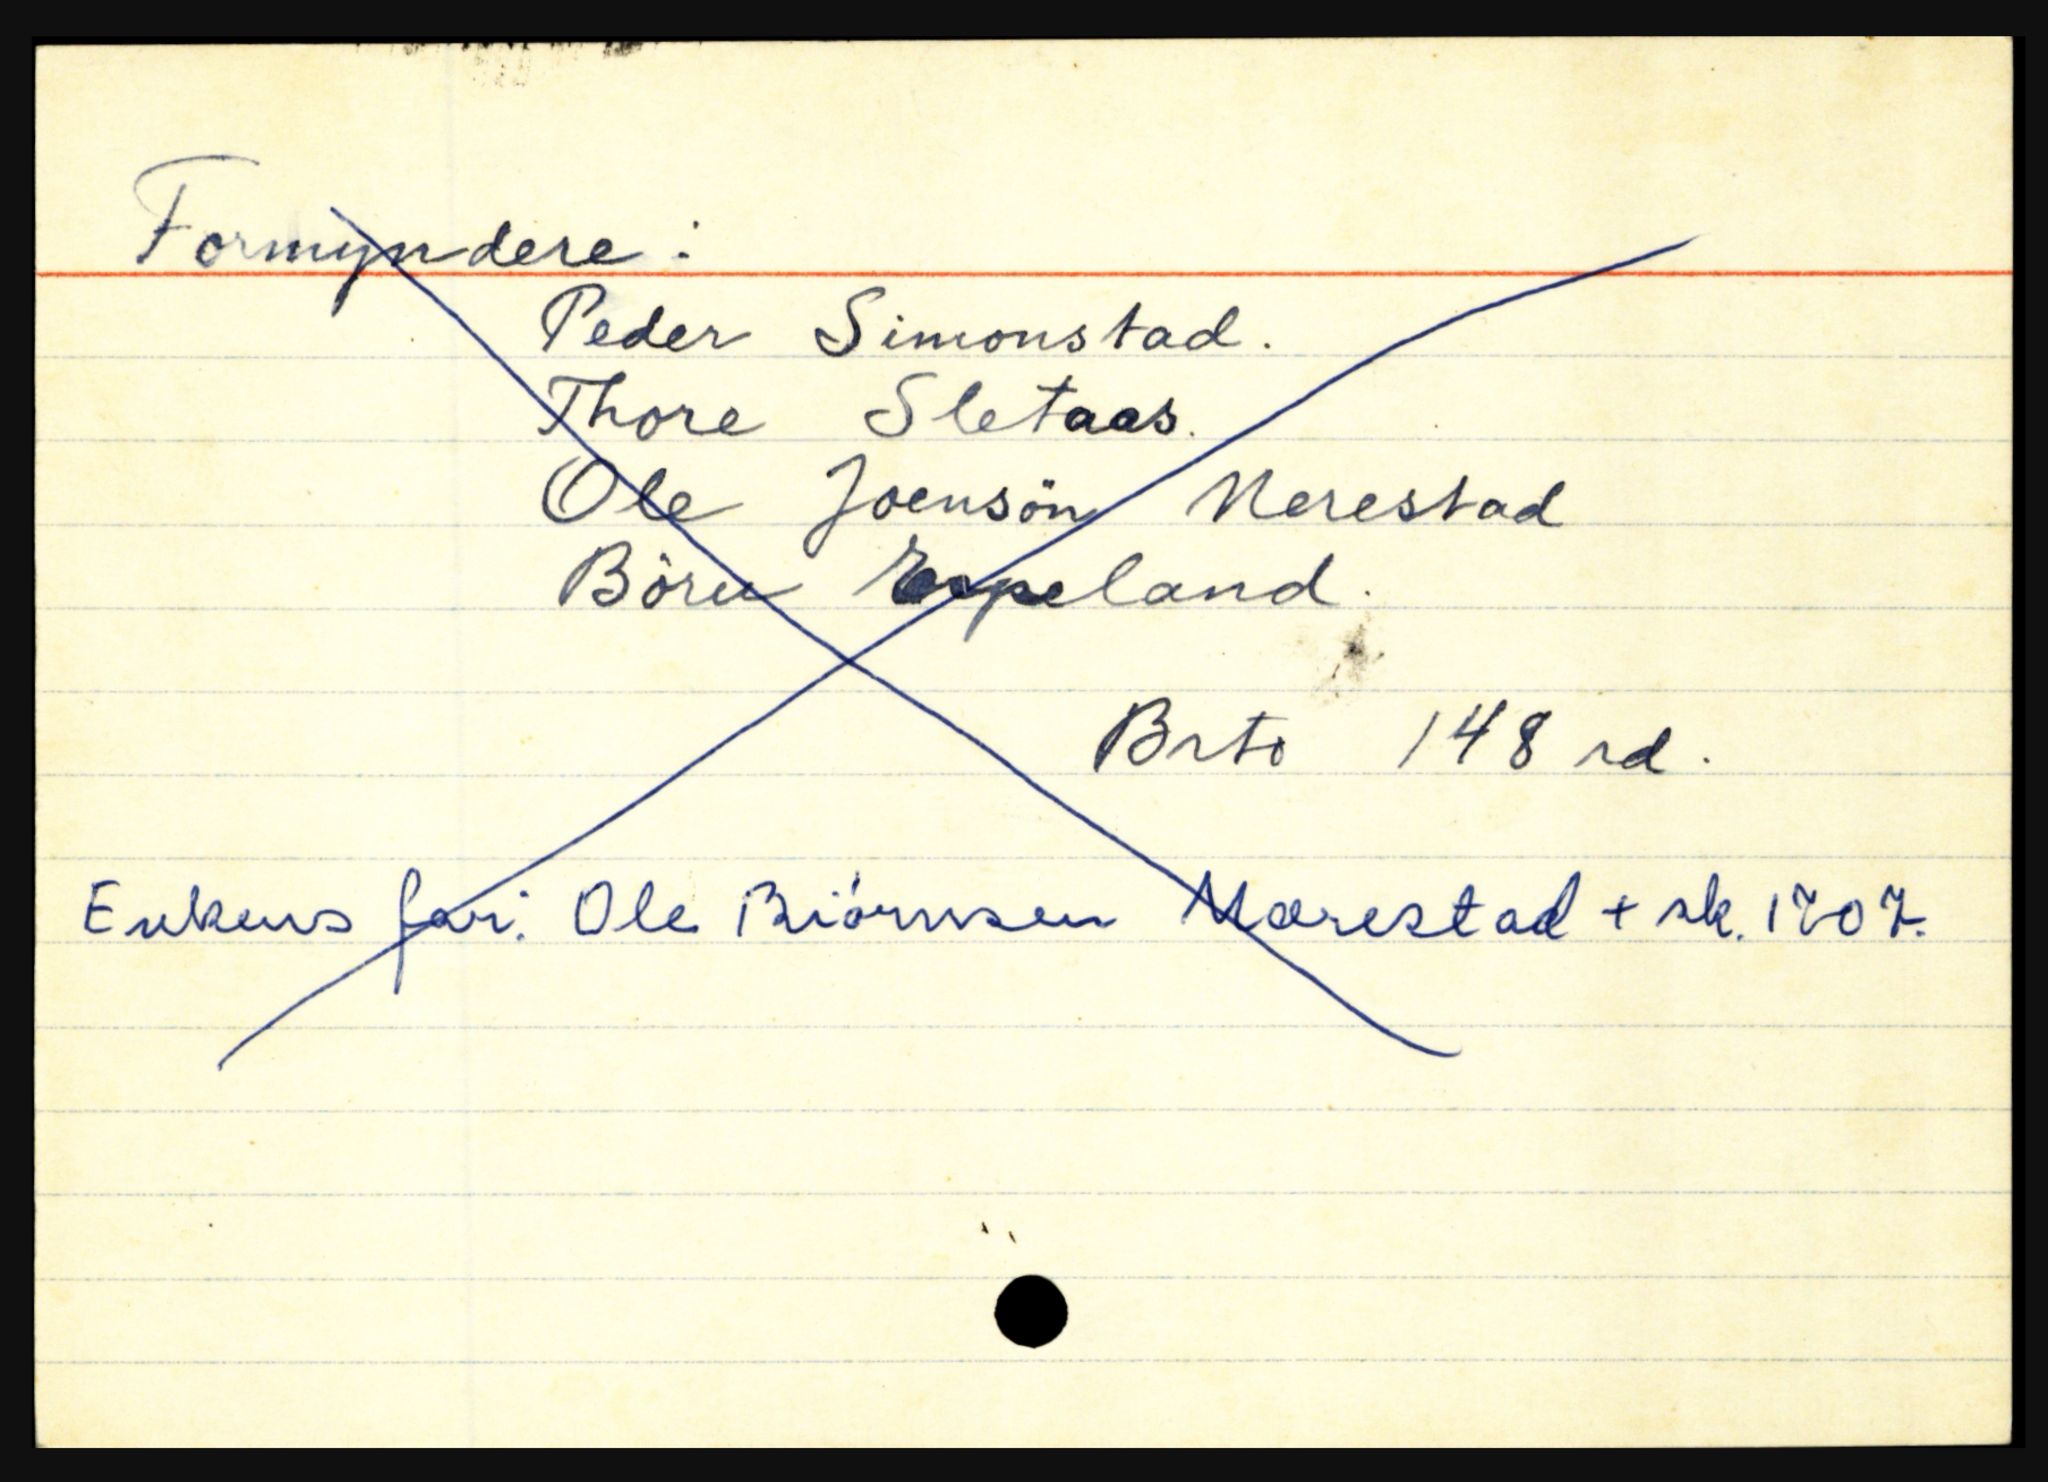 Formyndere:
Peder Simonstad.
Thore Sletaas.
Ole Joensön Nerestad
Böru Espeland.
Brto 148 rd.
Enkens far: Ole Biörnsen Nærestad + sk. 1707.